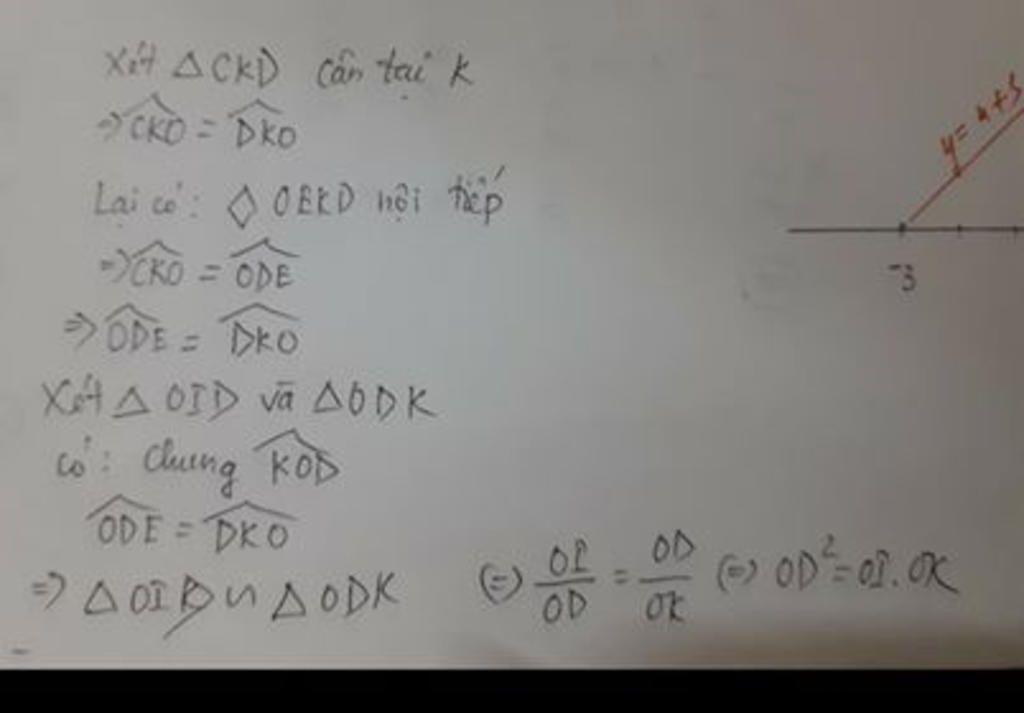 Xét △CKD cân tại K
=> \widehat{CKO} = \widehat{DKO}
Lại có: ◇ OEKD nội tiếp
=> \widehat{CKO} = \widehat{ODE}
=> \widehat{ODE} = \widehat{DKO}
Xét △ OID và △ODK
có: Chung \widehat{KOD}
\widehat{ODE} = \widehat{DKO}
=> △OID ∽ △ODK (=) \frac{OI}{OD} = \frac{OD}{OK} (=) OD² = OI.OK
-3